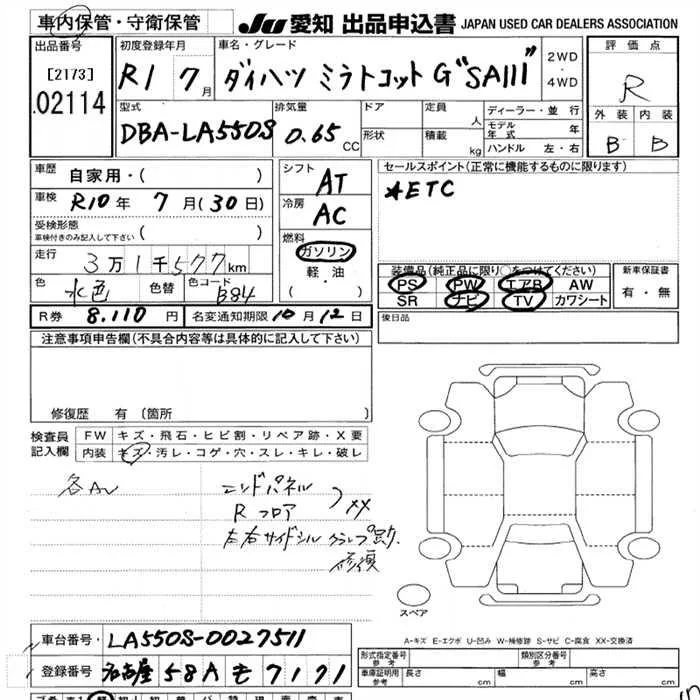 車内保管・守衛保管
JU 愛知 出品申込書 JAPAN USED CAR DEALERS ASSOCIATION
出品番号
[2173]
02114
初度登録年月
R1 7月
車名・グレード
ダイハツ ミラトコット G"SAIII"
2WD・4WD
評価点
R
型式
DBA-LA550S
排気量
0.65 CC
ドア
形状
定員 人
積載 kg
ディーラー・並行
モデル年式 年
ハンドル 左・右
外装 内装
B B
車歴 自家用・( )
車検 R10年 7月(30日)
受検形態
車検付きのみ記入して下さい ( )
走行 3万1千577km
色 水色 色替 色コード B84
シフト AT
冷房 AC
燃料
ガソリン
軽・油
・( )
セールスポイント(正常に機能するものに限ります)
*ETC
装備品(純正品に限り○をつけてください)
PS PW エアB AW
SR ナビ TV カワシート
新車保証書
有・無
R券 8.110円 名変通知期限 10月12日
後日品
注意事項申告欄(不具合内容等は具体的に記入して下さい)
修復歴 有〔箇所
検査員記入欄
FW キズ・飛石・ヒビ割・リペア跡・X要
内装 キズ・汚レ・コゲ・穴・スレ・キレ・破レ
各A
エンドパネル
Rフロア XX
左右サイドシル クランプ跡
修復
スペア
A-キズ E-エクボ U-凹み W-補修跡 S-サビ C-腐食 XX-交換済
車台番号 LA550S-0027511
登録番号 名古屋 58A モ 7171
形式指定番号 参考
類別区分番号 参考
車庫証明用 参考 長さ cm 幅 cm 高さ cm